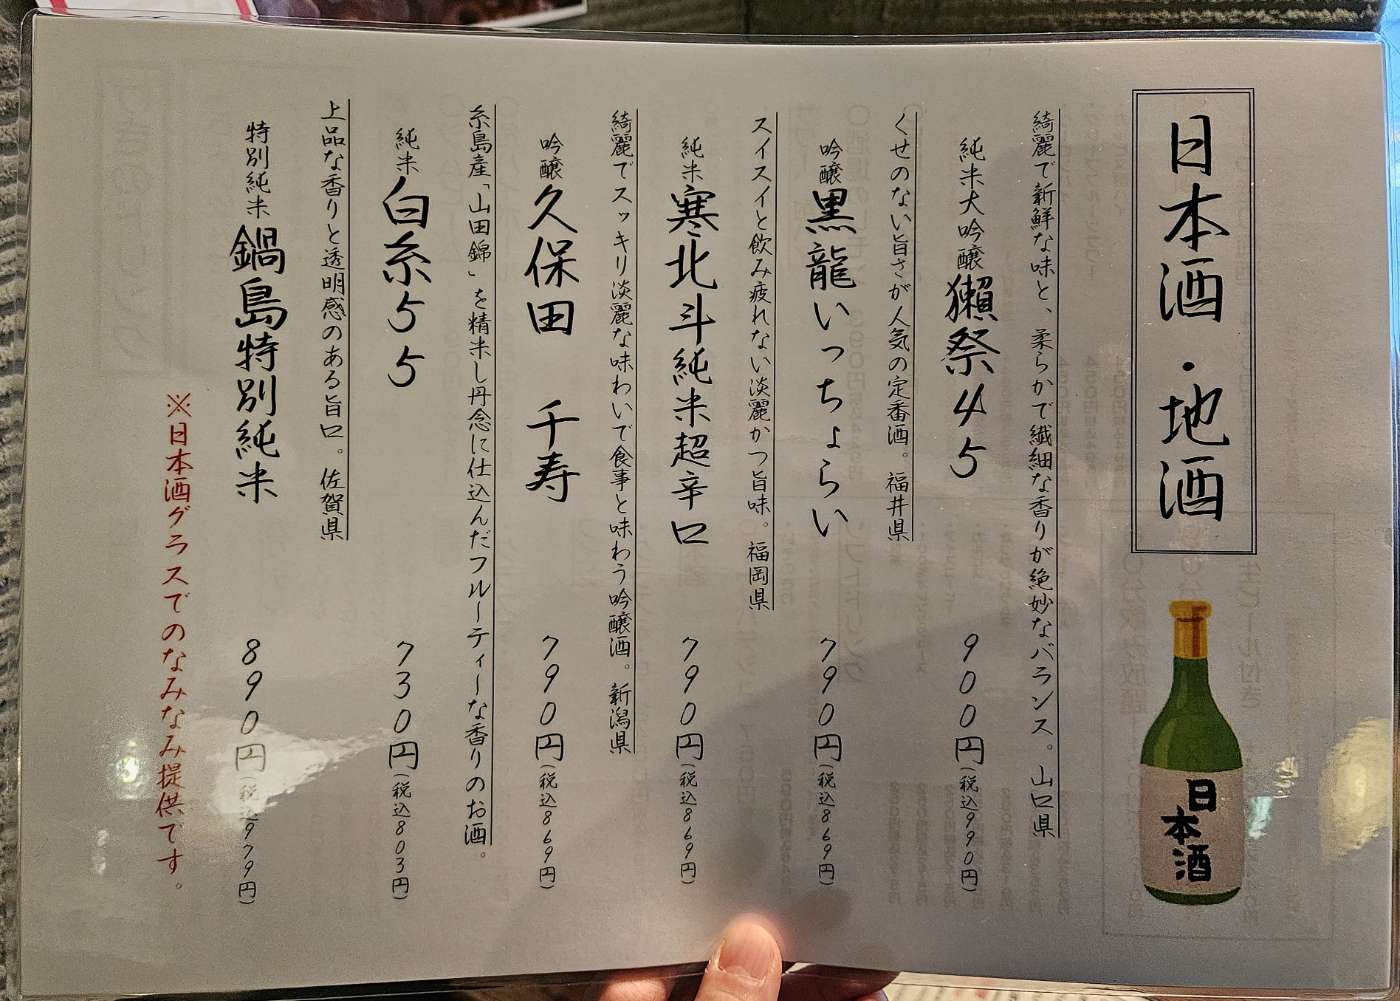 日本酒・地酒
日本酒
綺麗で新鮮な味と、柔らかで繊細な香りが絶妙なバランス。山口県
純米大吟醸 獺祭45 900円(税込990円)
くせのない旨さが人気の定番酒。福井県
吟醸 黒龍いっちょらい 790円(税込869円)
スイスイと飲み疲れない淡麗かつ旨味。福岡県
純米 寒北斗純米超辛口 790円(税込869円)
綺麗でスッキリ淡麗な味わいで食事と味わう吟醸酒。新潟県
吟醸 久保田 千寿 790円(税込869円)
糸島産「山田錦」を精米し丹念に仕込んだフルーティーな香りのお酒。
純米 白糸55 730円(税込803円)
上品な香りと透明感のある旨口。佐賀県
特別純米 鍋島特別純米 890円(税込979円)
※日本酒グラスでのなみなみ提供です。